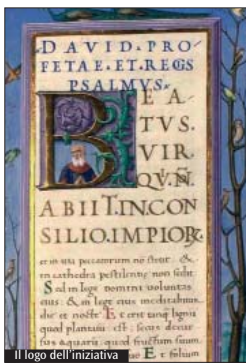 DAVID·PRO
FETAE·ET·REGIS
PSALMVS·
BEA
TVS·
VIR·
QVI·Ñ·
ABIIT·IN·CON
SILIO·IMPIOR·
et in uia peccatorum nō stetit: &
in cathedra pestilentię non sedit.
Sed in lege domini uoluntas
eius: & in lege eius meditabitur
die et nocte. Et erit tanq̄ lignū
quod plantatū est: secus decur
sus aquarū: quod fructum suum
Et folium
Il logo dell'iniziativa